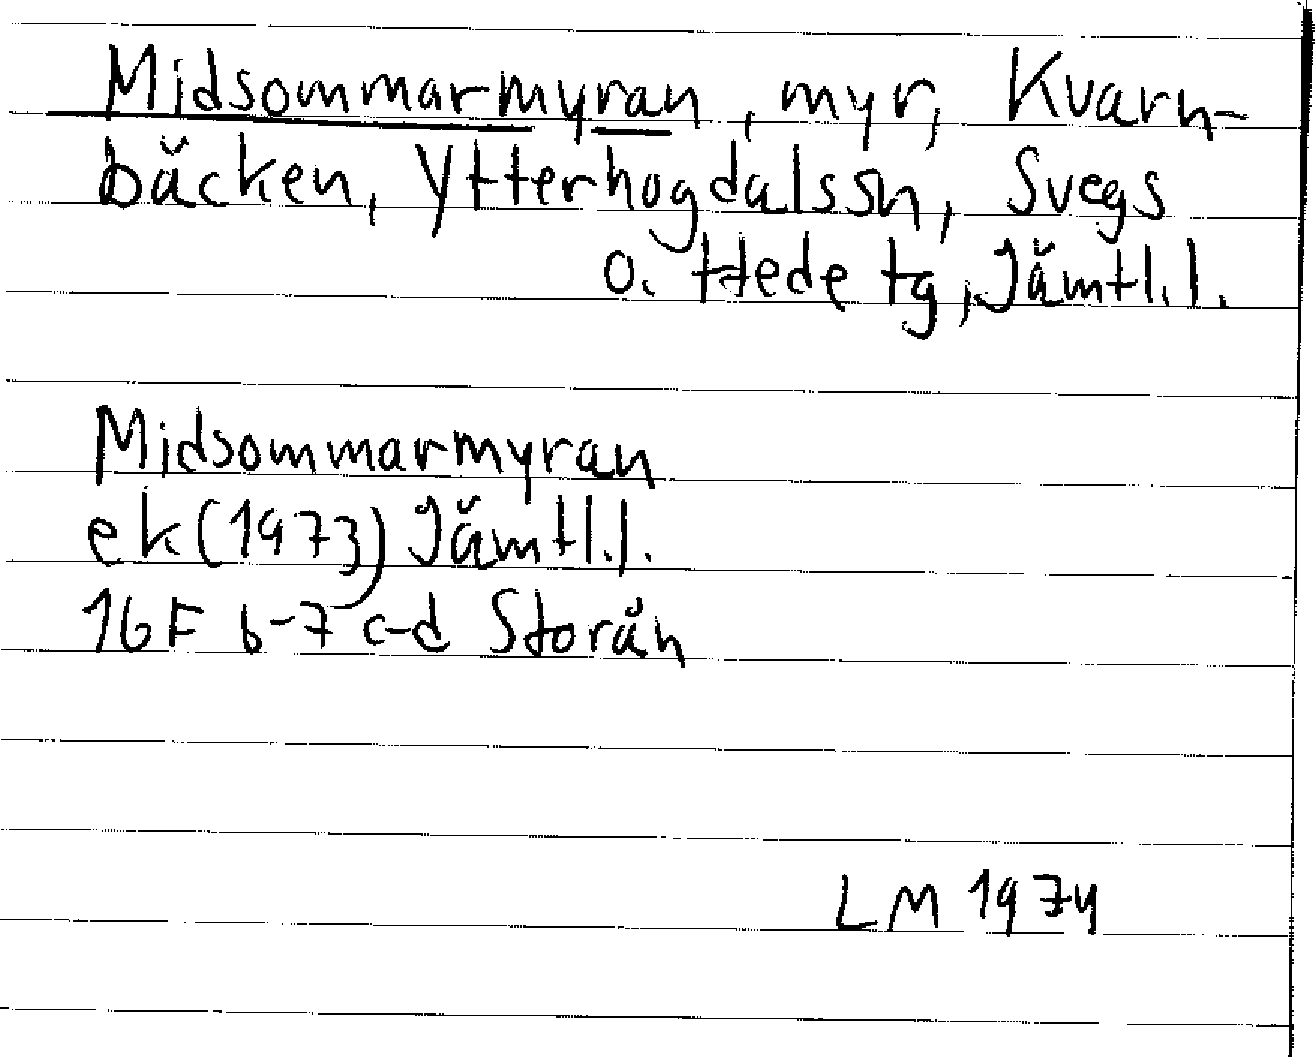 Midsommarmyran, myr, Kvarn-
bäcken, Ytterhogdalssn, Svegs
o. Hede tg, Jämtl.l.
Midsommarmyran
ek (1973) Jämtl.l.
16F 6-7 c-d Storån
LM 1974